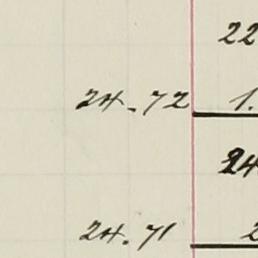 22
24.72 1.
24
24.71 2